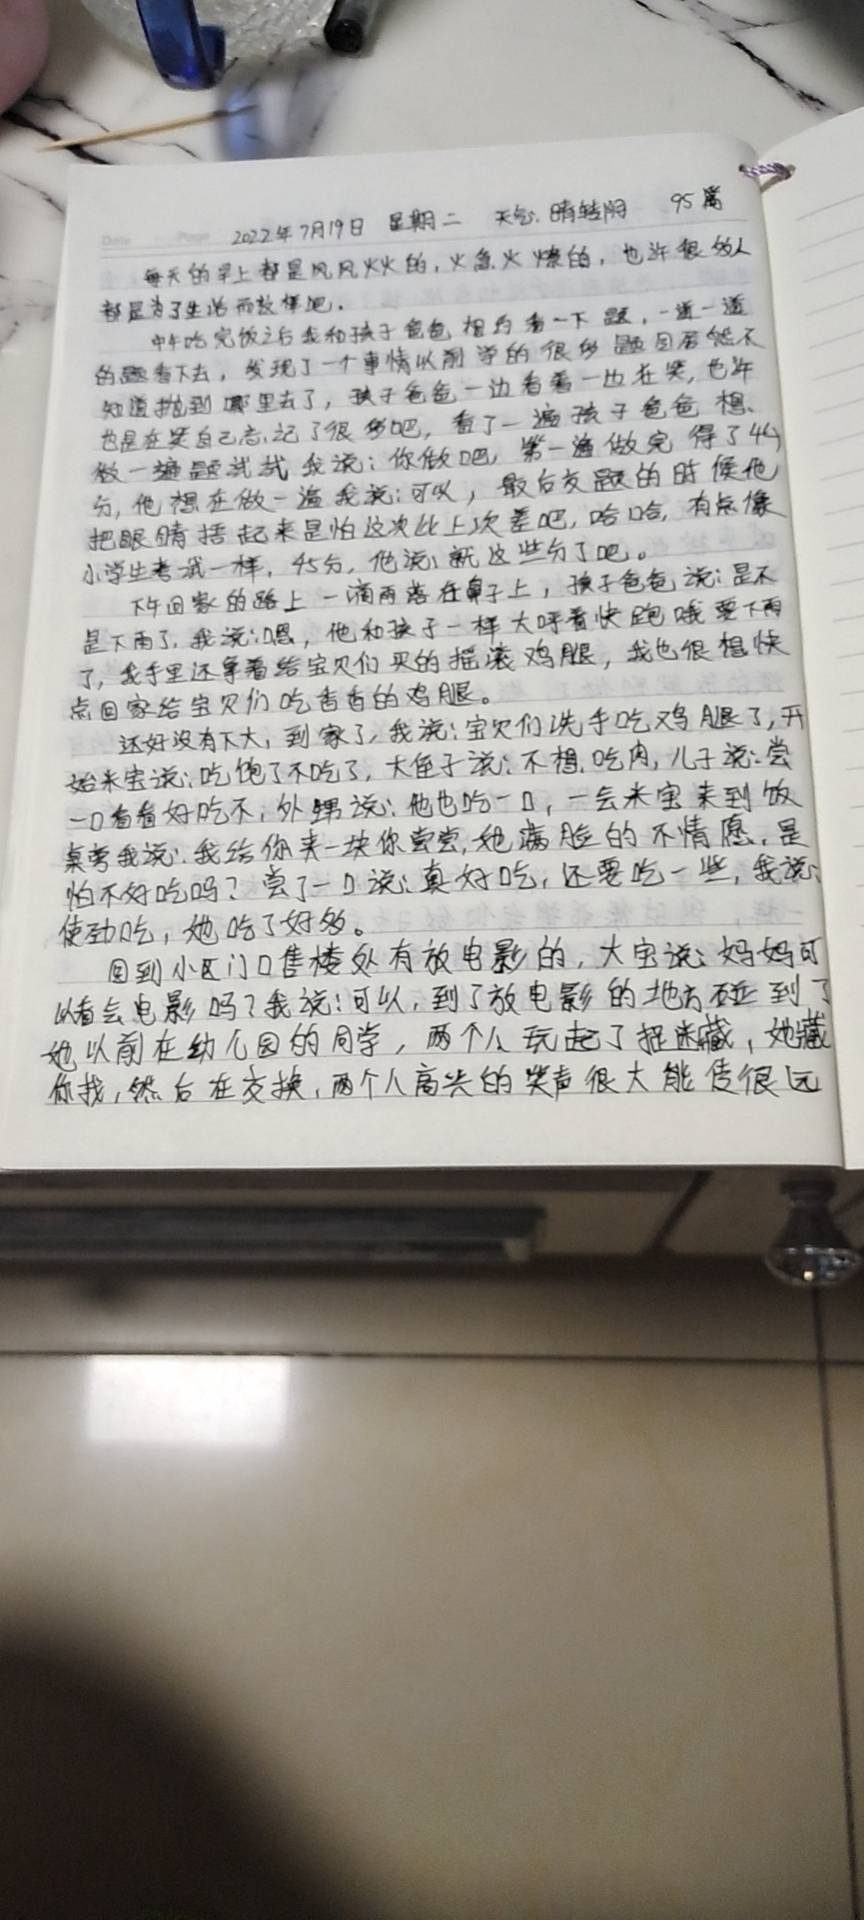 Date Page 2022年7月19日 星期二 天气:晴转阴 95篇
每天的早上都是风风火火的,火急火燎的,也许很多人
都是为了生活而这样吧。
中午吃完饭之后我和孩子爸爸相约看一下题,一道一道
的题看下去,发现了一个事情以前学的很多题目居然不
知道抛到哪里去了,孩子爸爸一边看着一边在笑,也许
也是在笑自己忘记了很多吧,看了一遍孩子爸爸想
做一遍题试试我说:你做吧,第一遍做完得了44
分,他想在做一遍我说:可以,最后交题的时候他
把眼睛捂起来是怕这次比上次差吧,哈哈,有点像
小学生考试一样,45分,他说:就这些分了吧。
下午回家的路上一滴雨落在鼻子上,孩子爸爸说:是不
是下雨了,我说:嗯,他和孩子一样大呼着快跑哦要下雨
了,我手里还拿着给宝贝们买的摇滚鸡腿,我也很想快
点回家给宝贝们吃香香的鸡腿。
还好没有下大,到家了,我说:宝贝们洗手吃鸡腿了,开
始米宝说:吃饱了不吃了,大侄子说:不想吃肉,儿子说:尝
一口看看好吃不,外甥说:他也吃一口,一会米宝来到饭
桌旁我说:我给你夹一块你尝尝,她满脸的不情愿,是
怕不好吃吗?尝了一口说:真好吃,还要吃一些,我说:
使劲吃,她吃了好多。
回到小区门口售楼处有放电影的,大宝说:妈妈可
以看会电影吗?我说:可以,到了放电影的地方碰到了
她以前在幼儿园的同学,两个人玩起了捉迷藏,她藏
你找,然后在交换,两个人高兴的笑声很大能传很远